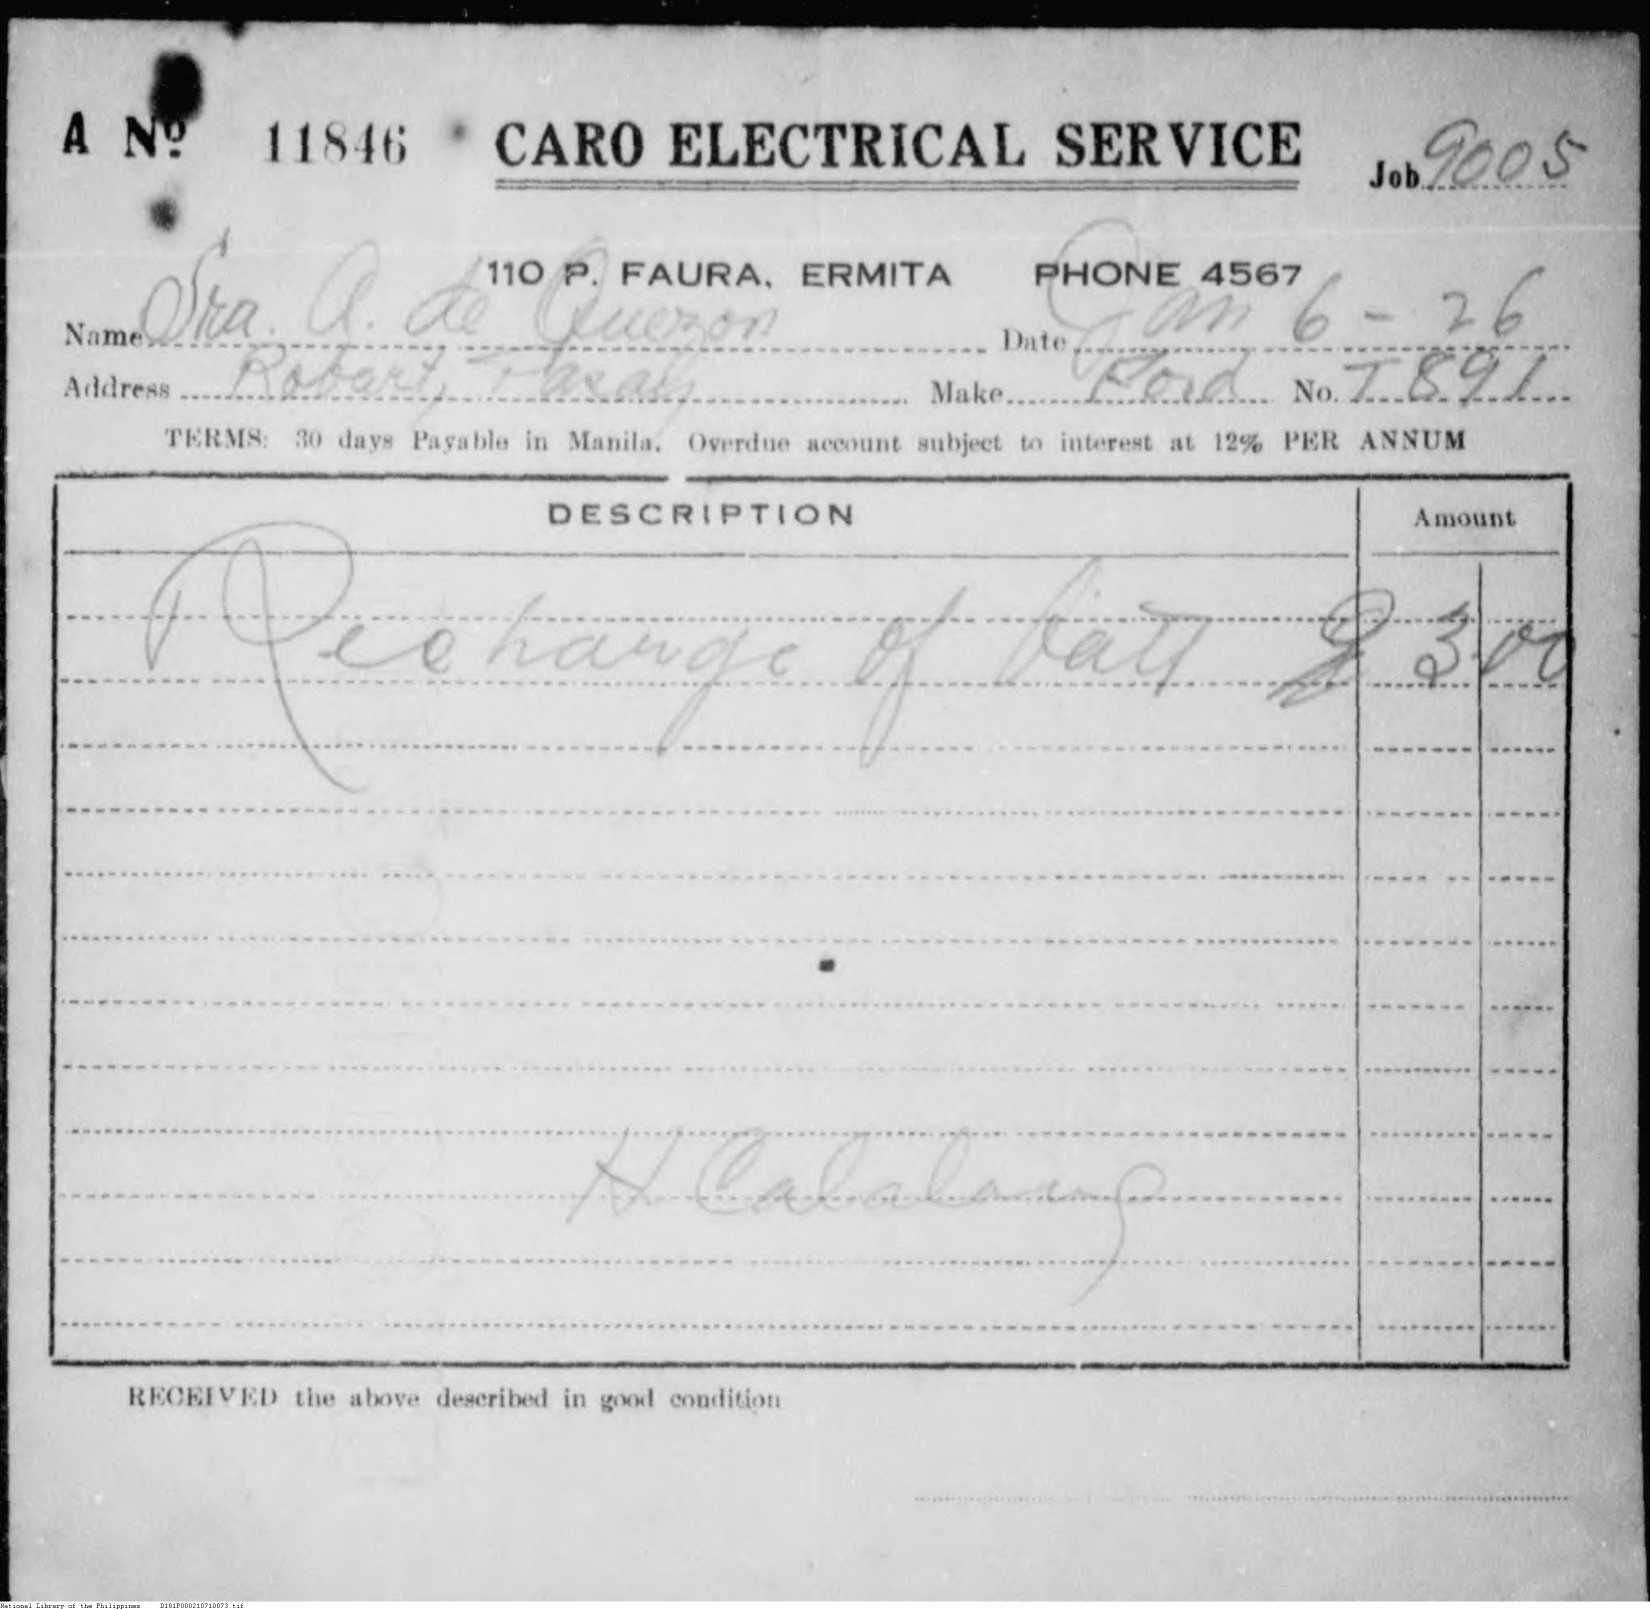 A Nº 11846 CARO ELECTRICAL SERVICE Job 9005
110 P. FAURA, ERMITA PHONE 4567
Name Sra. A. de Quezon Date Jan 6-26
Address Robert, Pasay Make Ford No. T 891
TERMS: 30 days Payable in Manila. Overdue account subject to interest at 12% PER ANNUM
DESCRIPTION Amount
Recharge of batt ₱ 3 00
H Calalang
RECEIVED the above described in good condition
National Library of the Philippines D181P000210710073.tif